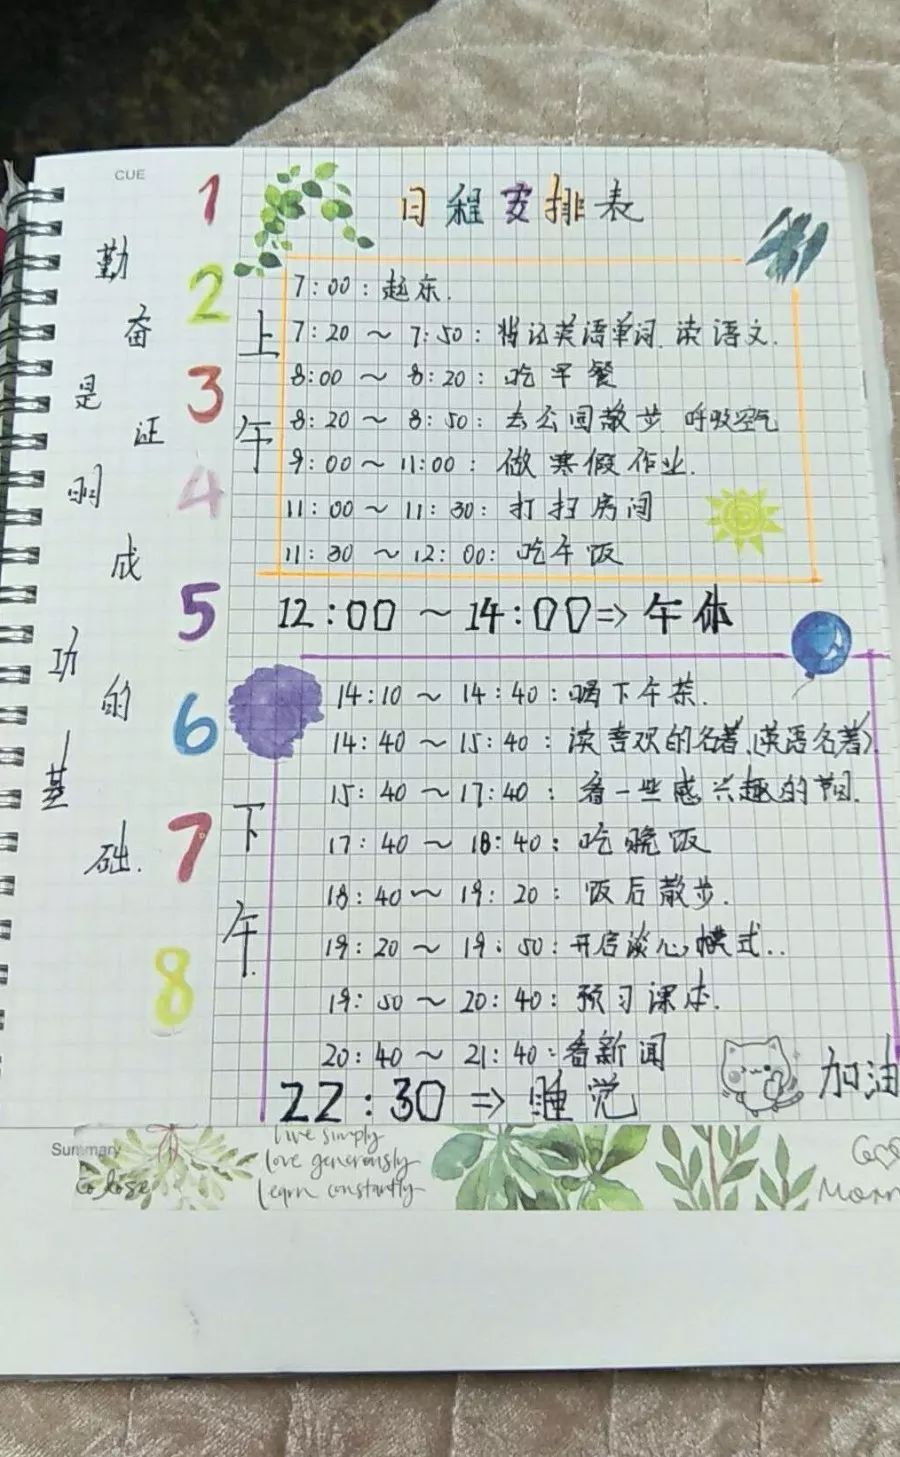 CUE
日程安排表
勤奋是证明成功的基础.
1
2
3
4
5
6
7
8
上午
7:00:起床.
7:20～7:50:背记英语单词.读语文.
8:00～8:20:吃早餐
8:20～8:50:去公园散步 呼吸空气
9:00～11:00:做寒假作业.
11:00～11:30:打扫房间
11:30～12:00:吃午饭
12:00～14:00⇒午休
下午.
14:10～14:40:喝下午茶.
14:40～15:40:读喜欢的名著.(英语名著)
15:40～17:40:看一些感兴趣的节目.
17:40～18:40:吃晚饭
18:40～19:20:饭后散步.
19:20～19:50:开启谈心模式..
19:50～20:40:预习课本.
20:40～21:40:看新闻
22:30⇒睡觉
加油
Summary
live simply
love generously
learn constantly